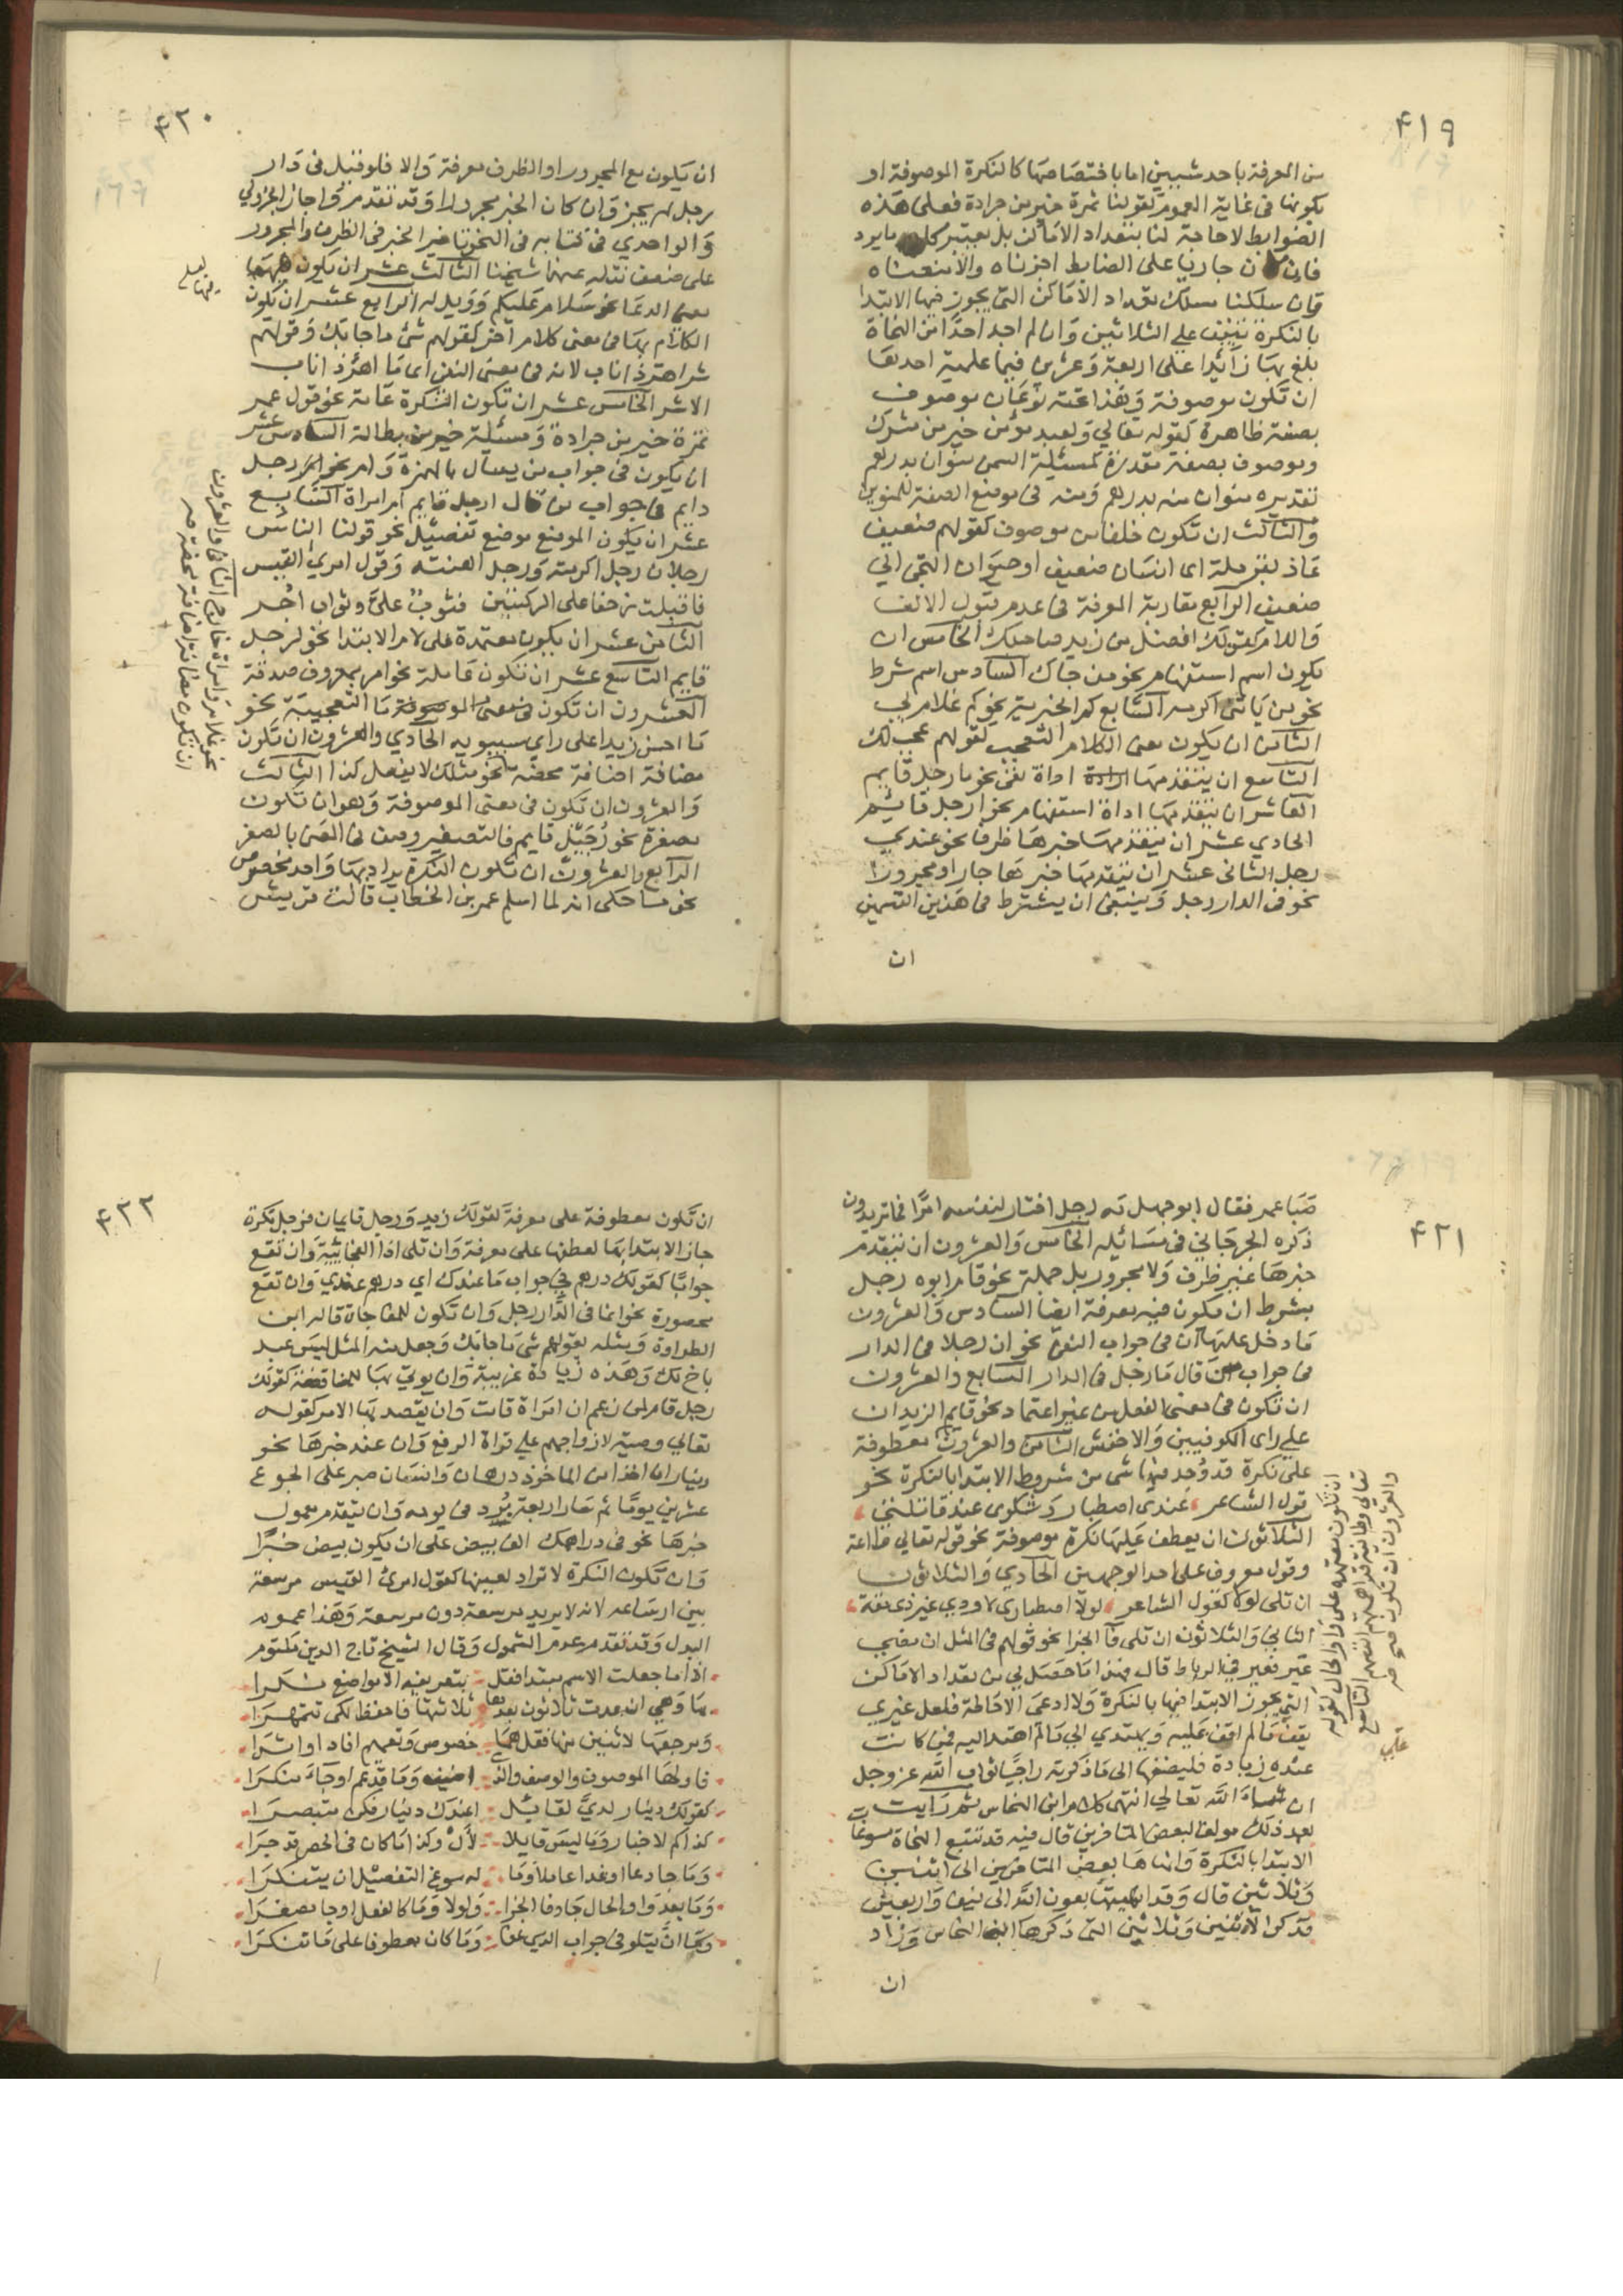 ٤١٩
من المعرفة باحد شيئين اما باختصاصها كالنكرة الموصوفة او
بكونها فى غاية العموم كقولنا تمرة خير من جرادة فعلى هذه
الضوابط لا حاجة لنا بتعداد الاماكن بل نعتبر كلما يرد
فان كان جاريا على الضابط اجزناه والا منعناه
وان سلكنا مسلك تعداد الاماكن التى يجوز فيها الابتدا
بالنكرة نيفت علي الثلاثين وان لم اجد احدا من النحاة
بلغ بها زايدا على اربعة وعشرين فيما علمته احدها
ان تكون موصوفة وهذا تحته نوعان موصوف
بصفة ظاهرة كقوله تعالي ولعبد مؤمن خير من مشرك
وموصوف بصفة مقدرة كمسئلة السمن منوان بدرهم
تقديره منوان منه بدرهم ومنه فى موضع الصفة للمنوين
والثالث ان تكون خلفا من موصوف كقولهم ضعيف
عاذ بقرملة اى انسان ضعيف او حيوان التجى الي
ضعيف الرابع مقاربة المعرفة فى عدم قبول الالف
واللام كقولك افضل من زيد صاحبك الخامس ان
يكون اسم استفهام نحو من جاك السادس اسم شرط
نحو من ياتنى اكرمه السابع كم الخبرية نحو كم غلام لي
الثامن ان يكون معنى الكلام التعجب كقولهم عجب لك
التاسع ان يتقدمها اداة نفى نحو ما رجل قايم
العاشر ان يتقدمها اداة استفهام نحو ارجل قائم
الحادي عشر ان يتقدمها خبرها ظرفا نحو عندي
رجل الثانى عشر ان يتقدمها خبرها جارا ومجرورا
نحو فى الدار رجل وينبغى ان يشترط فى هذين القسمين
ان
٤٢٠
ان يكون مع المجرور او الظرف معرفة والا فلو قيل فى دار
رجل لم يجز وان كان الخبر مجرورا وقد تقدم واجاز الجزولي
والواحدي فى كتابه فى النحو تاخير الخبر فى الظرف والمجرور
على ضعف نقله عنهما شيخنا الثالث عشر ان يكون فيها
معنى الدعا نحو سلام عليكم وويل له الرابع عشر ان يكون
الكلام بها فى معنى كلام آخر كقولهم شى ما جا بك وقولهم
شر اهر ذا ناب لانه فى معنى النفى اى ما اهر ذا ناب
الا شر الخامس عشر ان تكون النكرة عامة نحو قول عمر
تمرة خير من جرادة ومسئلة خير من بطالة السادس عشر
ان يكون فى جواب من يسال بالهمزة وام نحو رجل
دايم فى جواب من قال ارجل قايم ام امراة السابع
عشر ان يكون الموضع موضع تفصيل نحو قولنا الناس
رجلان رجل اكرمته ورجل اهنته وقول امرئ القيس
فاقبلت زحفا على الركبتين فثوب علي وثوب اجر
الثامن عشر ان يكون معتمدة على لام الابتدا نحو لرجل
قايم التاسع عشر ان تكون عاملة نحو امر بمعروف صدقة
العشرون ان تكون ما التعجبية نحو
ما احسن زيدا على راي سيبويه الحادي والعشرون ان تكون
مضافة اضافة محضة نحو مثلك لا يفعل كذا الثالث
والعشرون ان تكون فى معنى الموصوفة وهو ان تكون
مصغرة نحو رجيل قايم فالتصغير وصف فى المعنى بالصغر
الرابع والعشرون ان تكون النكرة يراد بها واحد مخصوص
نحو ما حكى انه لما اسلم عمر بن الخطاب قالت قريش
نحو غلام امراة خارج الثانى والعشرون
ان تكون مضافة اضافة محضة صح
٤٢١
صبا عمر فقال ابو جهل مه رجل اختار لنفسه امرا فما تريدون
ذكره الجرجاني فى مسائله الخامس والعشرون ان يتقدم
خبرها غير ظرف ولا مجرور بل جملة نحو قام ابوه رجل
بشرط ان يكون فيه معرفة ايضا السادس والعشرون
ما دخل عليها ان فى جواب النفى نحو ان رجلا فى الدار
فى جواب من قال ما رجل فى الدار السابع والعشرون
ان تكون فى معنى الفعل من غير اعتماد نحو قايم الزيدان
علي راى الكوفيين والاخفش الثامن والعشرون معطوفة
على نكرة قد وجد فيها شى من شروط الابتدا بالنكرة نحو
قول الشاعر عندى اصطبار وشكوى عند قاتلتى
الثلاثون ان يعطف عليها نكرة موصوفة نحو قوله تعالي طاعة
وقول معروف على احد الوجهين الحادي والثلاثون
ان تلى لولا كقول الشاعر لولا اصطبارى لاودى كل ذى مقة
الثانى والثلاثون ان تلى فا الجزا نحو قولهم فى المثل ان مضى
عير فعير فى الرباط قال فهذا ما حصل لي من تعداد الاماكن
التى يجوز الابتدا فيها بالنكرة ولا ادعى الاحاطة فلعل غيري
يقف ما لم اقف عليه ويهتدي الى ما لم اهتد اليه فمن كانت
عنده زيادة فليضفها الى ما ذكرته راجيا ثواب الله عز وجل
ان شاء الله تعالى انتهى كلام ابن النحاس ثم رايت
بعد ذلك مولفا لبعض المتاخرين قال فيه قد تتبع النحاة مسوغات
الابتدا بالنكرة وانهاها بعض المتاخرين الى اثنين
وثلاثين قال وقد انهيتها بعون الله الى نيف واربعين
فذكر الاثنين وثلاثين التى ذكرها ابن النحاس وزاد
ان
ان تكون معتمدة على واو الحال كقوله
تعالى وطائفة قد اهمتهم انفسهم التاسع
والعشرون ان تكون صح
٤٢٢
ان تكون معطوفة على معرفة كقولك زيد ورجل قايمان فرجل نكرة
جاز الابتدا بها لعطفها على معرفة وان تلى اذا الفجائية وان تقع
جوابا كقولك درهم فى جواب ما عندك اي درهم عندي وان تقع
محصورة نحو انما فى الدار رجل وان تكون للمفاجاة قاله ابن
الطراوة ومثله بقولهم شى ما جا بك وجعل منه المثل ليس عبد
باخ لك وهذه زيادة غريبة وان يوتى بها للمناقضة كقولك
رجل قام لمن زعم ان امراة قامت وان يقصد بها الامر كقوله
تعالي وصية لازواجهم علي قراة الرفع وان عند خبرها نحو
ديناران اخذا من الماخوذ درهمان وانسان صبر على الجوع
عشرين يوما ثم سار اربعة برد فى يومه وان يتقدم معمول
خبرها نحو فى دراهمك الف بيض على ان يكون بيض خبرا
وان تكون النكرة لا تراد لعينها كقول امرئ القيس مرسعة
بين ارساغه لانه لا يريد مرسعة دون مرسعة وهذا عموم
البدل وقد تقدم عدم الشمول وقال الشيخ تاج الدين مكتوم
اذا ما جعلت الاسم مبتدا فقل بتعريفه الا مواضع نكرا
بها وهي ان عدت ثلاثون بعدها ثلاثتها فاحفظ لكى تتمهرا
ومرجعها لاثنين منها فقل هما خصوص وتعميم افاد او اشرا
فاولها الموصوف والوصف والذى اضيف وما قد عم او جاء منكرا
كقولك دينار لدي لقائل اعندك دينار فكن متبصرا
كذا كم لاخبار وما ليس قابلا لأل وكذا ما كان فى الحصر قد جرا
وما جا دعا او غدا عاملا وما له سوغ التفصيل ان يتنكرا
وما بعد واو الحال جا وفا الجزا ولولا وما كالفعل او جا مصغرا
وما ان يتلو فى جواب الذي نفى وما كان معطوفا على ما تنكرا